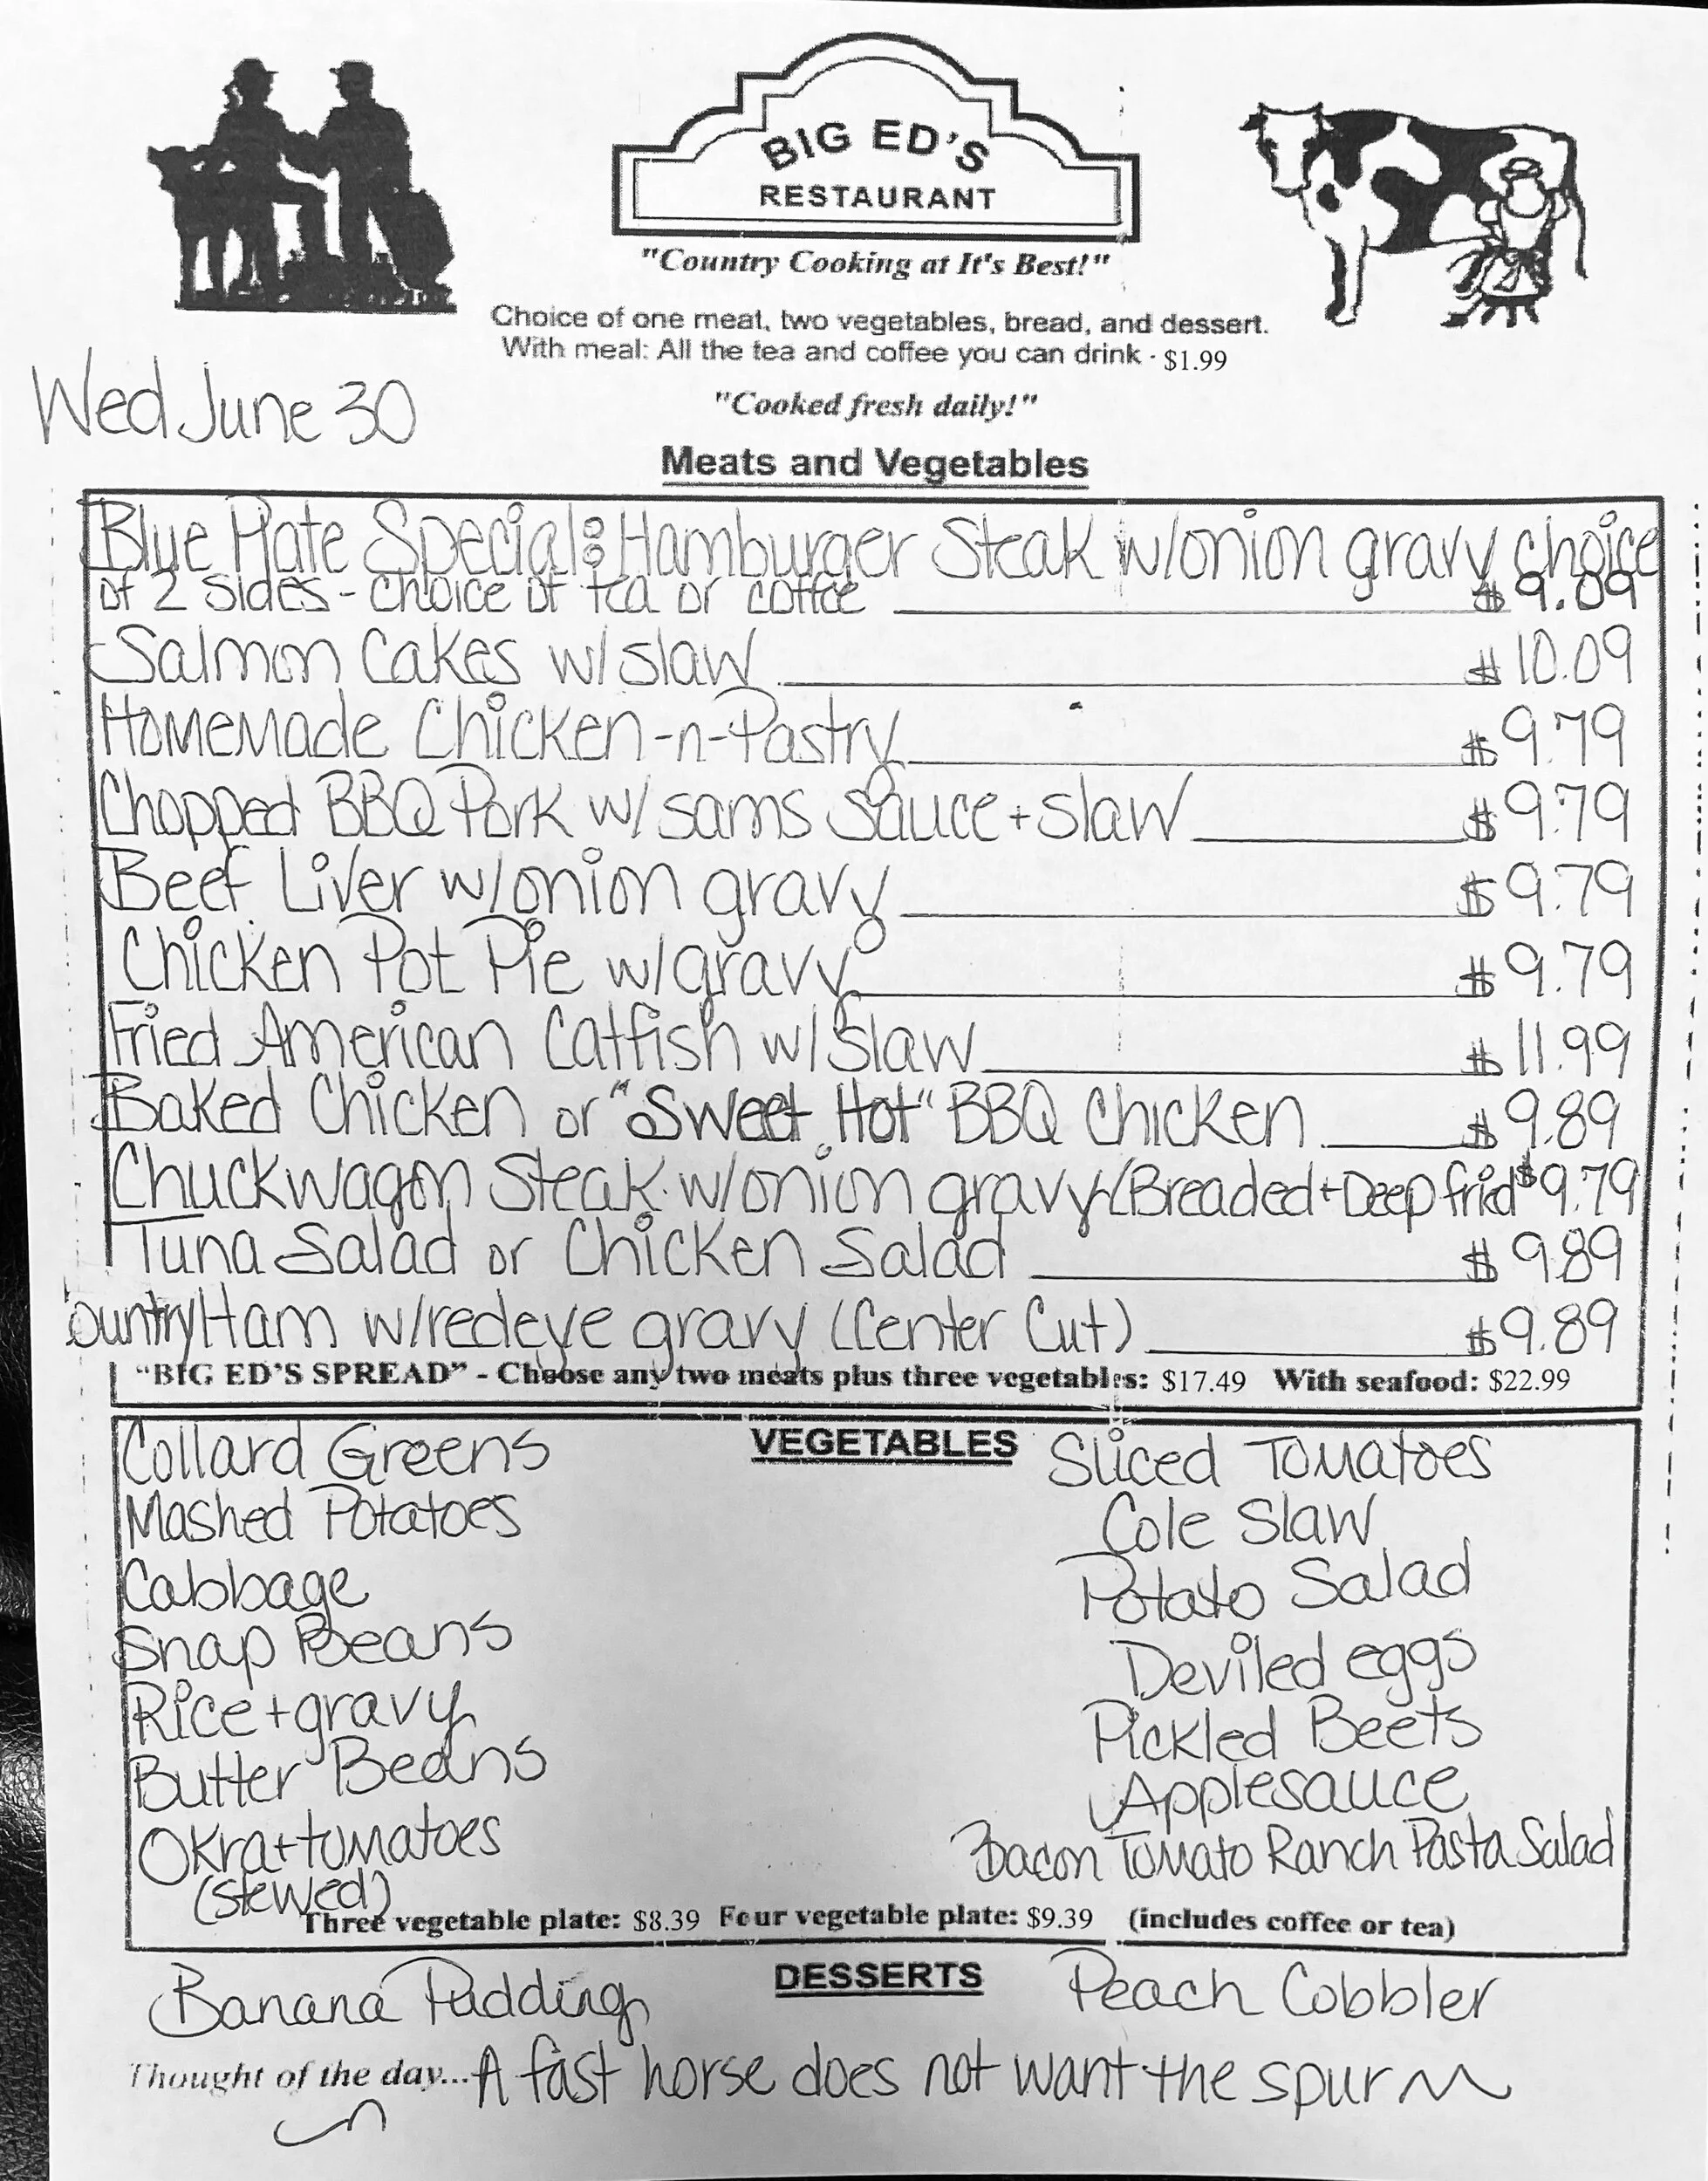 BIG ED'S
RESTAURANT
"Country Cooking at It's Best!"
Choice of one meat, two vegetables, bread, and dessert.
With meal: All the tea and coffee you can drink - $1.99
Wed June 30
"Cooked fresh daily!"
Meats and Vegetables
Blue Plate Special: Hamburger Steak w/onion gravy choice
of 2 sides - choice of tea or coffee $9.09
Salmon Cakes w/slaw $10.09
Homemade Chicken-n-Pastry $9.79
Chopped BBQ Pork w/ sams sauce + slaw $9.79
Beef Liver w/onion gravy $9.79
Chicken Pot Pie w/gravy $9.79
Fried American Catfish w/slaw $11.99
Baked Chicken or "Sweet Hot" BBQ Chicken $9.89
Chuckwagon Steak w/onion gravy (Breaded + Deep fried $9.79
Tuna Salad or Chicken Salad $9.89
ountry Ham w/redeye gravy (Center Cut) $9.89
"BIG ED'S SPREAD" - Choose any two meats plus three vegetables: $17.49 With seafood: $22.99
VEGETABLES
Collard Greens
Mashed Potatoes
Cabbage
Snap Beans
Rice + gravy
Butter Beans
Okra + tomatoes
(stewed)
Sliced Tomatoes
Cole Slaw
Potato Salad
Deviled eggs
Pickled Beets
Applesauce
Bacon Tomato Ranch Pasta Salad
Three vegetable plate: $8.39 Four vegetable plate: $9.39 (includes coffee or tea)
DESSERTS
Banana Pudding
Peach Cobbler
Thought of the day... A fast horse does not want the spur